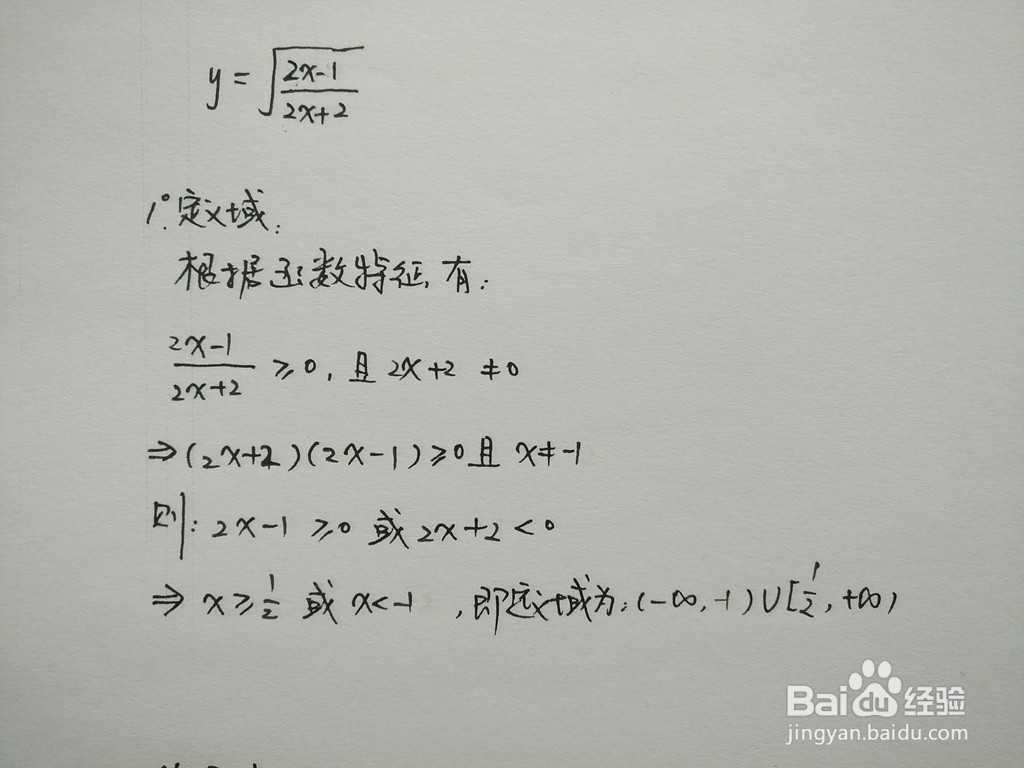 y = √((2x-1)/(2x+2))
1°.定义域:
根据函数特征,有:
(2x-1)/(2x+2) ≥0, 且 2x+2 ≠0
⇒(2x+2)(2x-1)≥0且 x≠-1
则: 2x-1 ≥0 或 2x+2 <0
⇒ x≥1/2 或 x<-1 ,即定义域为:(-∞,-1)∪[1/2,+∞)
Baidu经验
jingyan.baidu.com